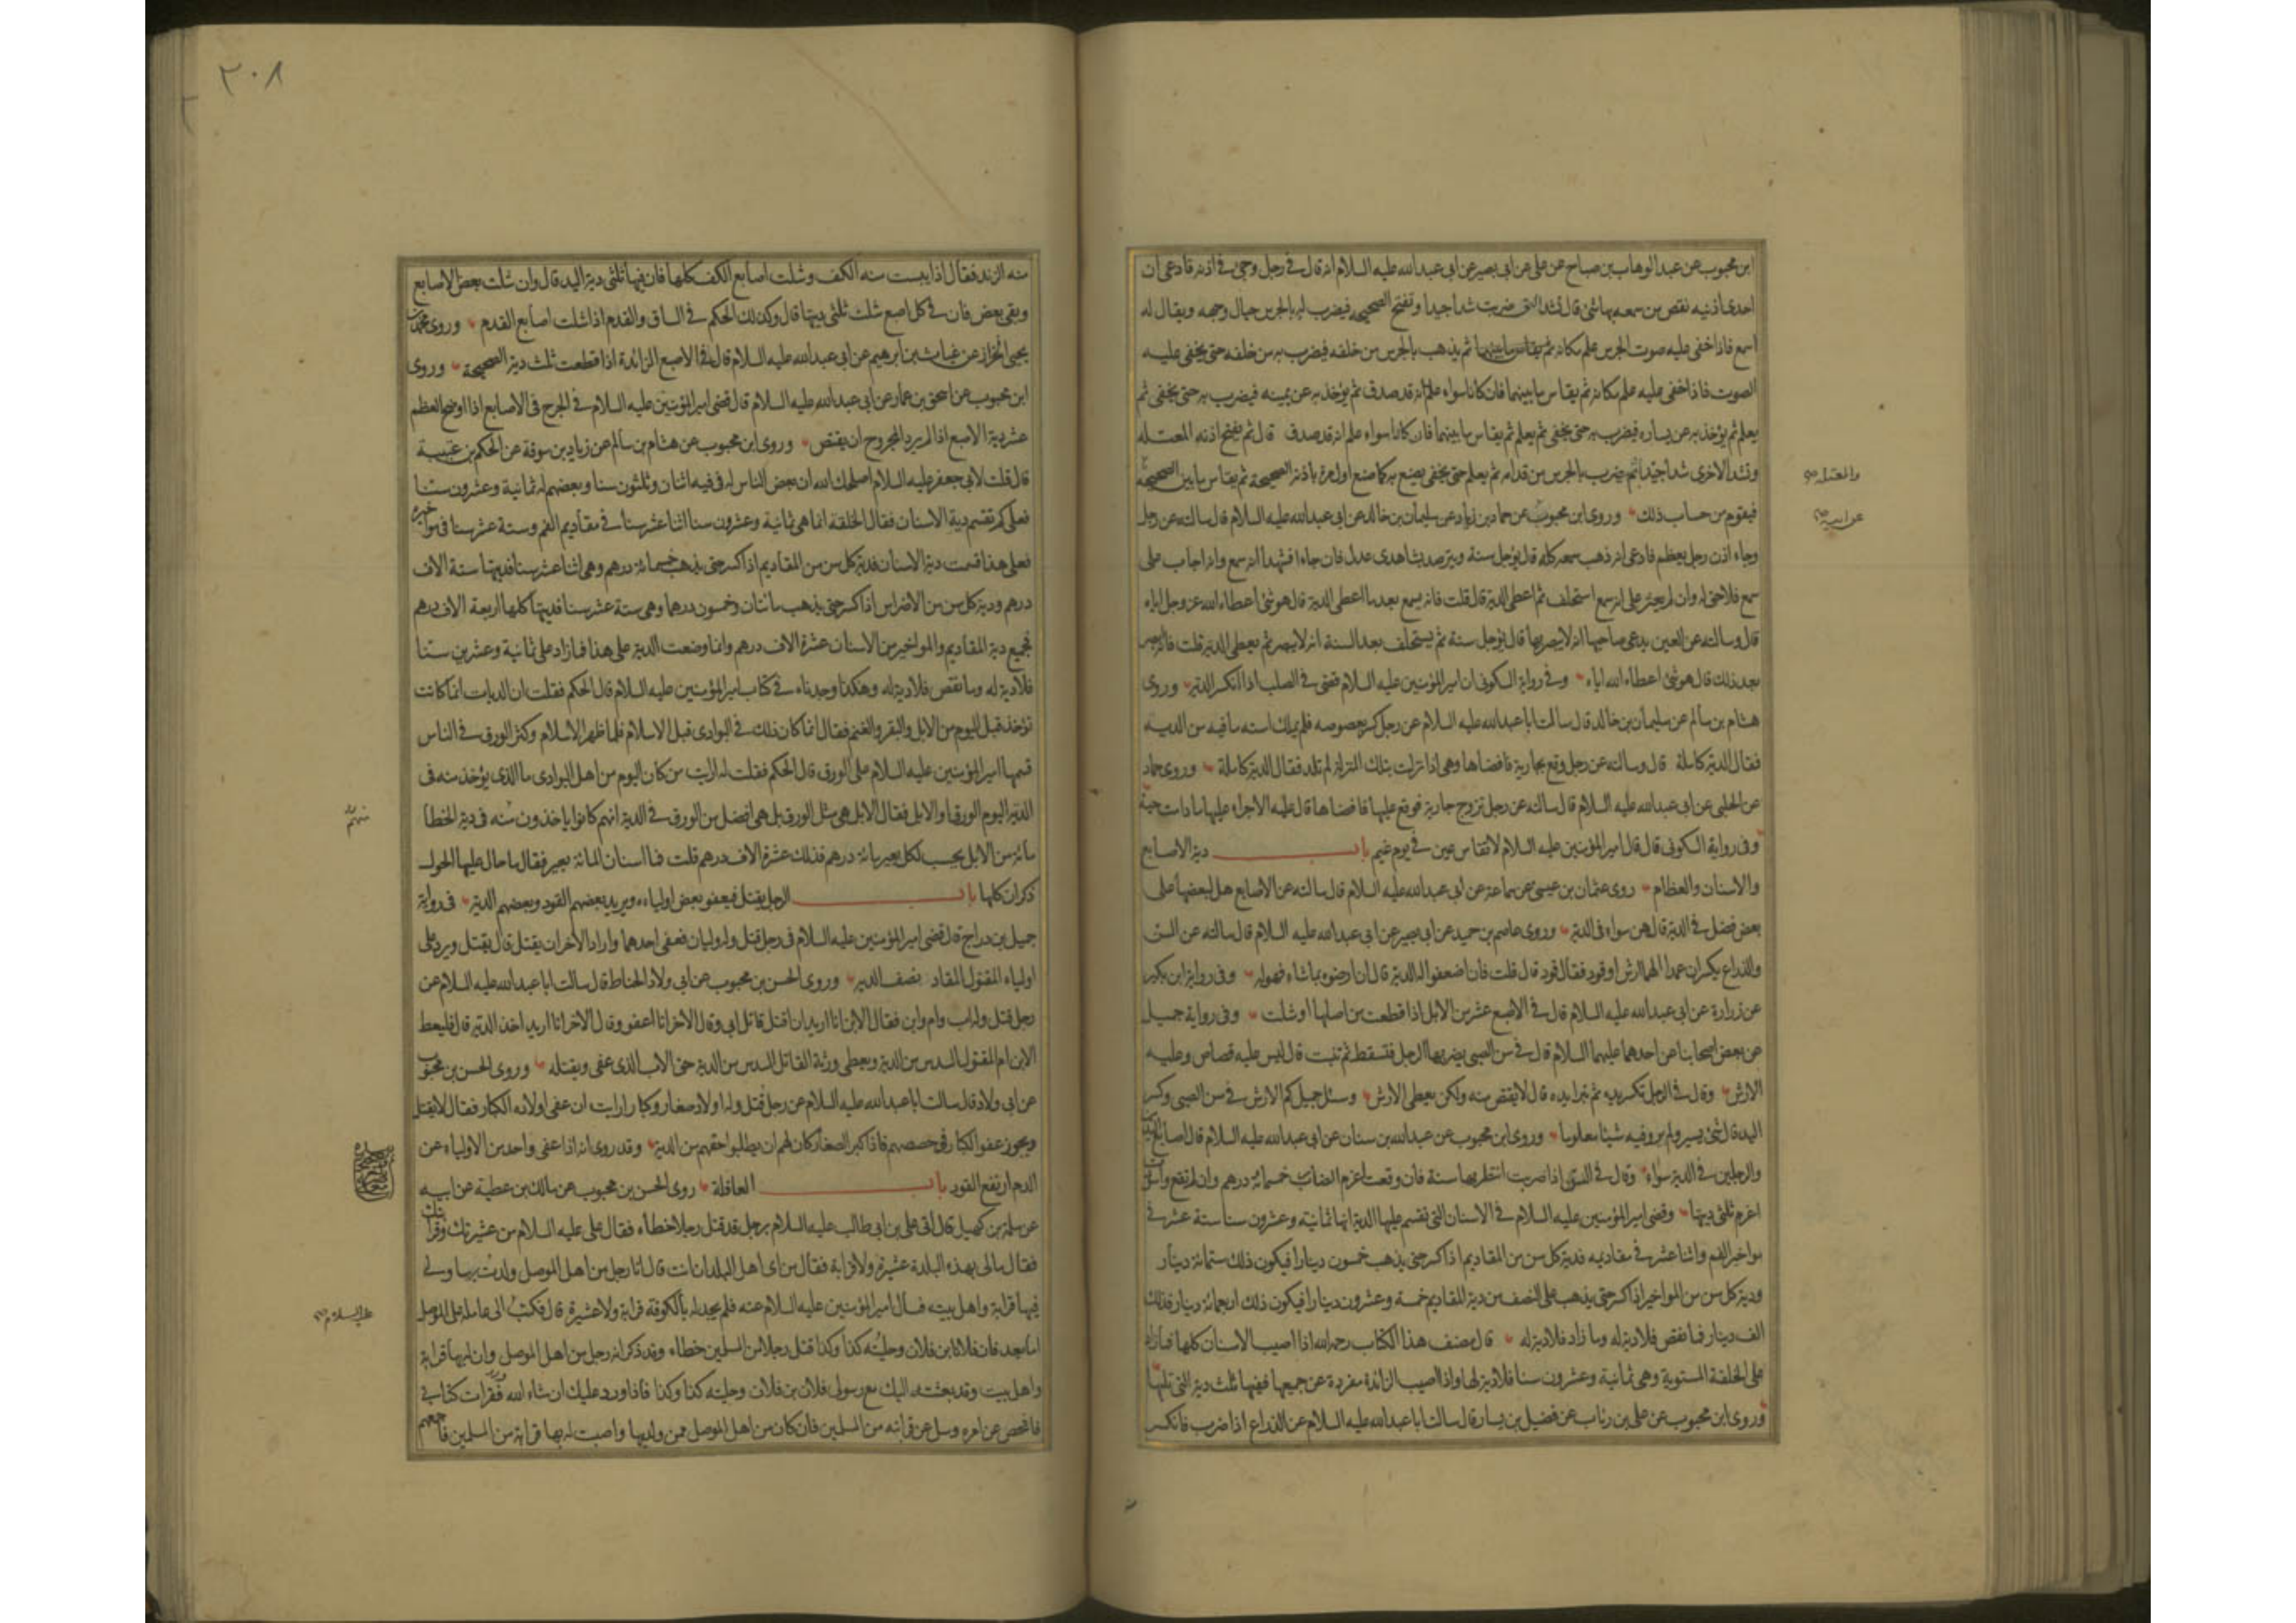 ابن محبوب عن عبد الوهاب بن صباح عن على عن ابى بصير عن ابى عبد الله عليه السلام انه قال فى رجل وجئ فى اذنه فادعى ان
احدى اذنيه نقص من سمعه بها شئ قال تشد التى ضربت شدا جيدا وتفتح الصحيحة فيضرب لها بالجرس حيال وجهه ويقال له
اسمع فاذا خفى عليه صوت الجرس علم مكانه ثم يقاس ما بينهما ثم يذهب بالجرس من خلفه فيضرب به من خلفه حتى يخفى عليه
الصوت فاذا خفى عليه علم مكانه ثم يقاس ما بينهما فان كانا سواء علم انه قد صدق ثم يؤخذ به عن يمينه فيضرب به حتى يخفى ثم
يعلم ثم يؤخذ به عن يساره فيضرب به حتى يخفى ثم يعلم ثم يقاس ما بينهما فان كانا سواء علم انه قد صدق قال ثم يفتح اذنه المعتلة
وتشد الاخرى شدا جيدا ثم يضرب بالجرس من قدامه ثم يعلم حتى يخفى يصنع به كما صنع اول مرة باذنه الصحيحة ثم يقاس ما بين الصحيحة
والمعتلة صح
فيقوم من حساب ذلك وروى ابن محبوب عن حماد بن زياد عن سليمان بن خالد عن ابى عبد الله عليه السلام قال سالته عن رجل
عن ابيه صح
وجاء اذن رجل بعظم فادعى انه ذهب سمعه كله قال يؤجل سنة ويترصد بشاهدى عدل فان جاءا فشهدا انه سمع وانه اجاب على
سمع فلا حق له وان لم يعثر على انه سمع استحلف ثم اعطى الدية قال قلت فانه يسمع بعد ما اعطى الدية قال هو شئ اعطاه الله عز وجل اياه
قال وسالته عن العين يدعى صاحبها انه لا يبصر بها قال يؤجل سنة ثم يستحلف بعد السنة انه لا يبصر ثم يعطى الدية قلت فانه يبصر
بعد ذلك قال هو شئ اعطاه الله اياه وفى رواية السكونى ان امير المؤمنين عليه السلام قضى فى الصلب اذا انكسر الدية وروى
هشام بن سالم عن سليمان بن خالد قال سالت ابا عبد الله عليه السلام عن رجل كسر بعصوصه فلم يملك استه ما فيه من الدية
فقال الدية كاملة قال وسالته عن رجل وقع بجارية فافضاها وهى اذا نزلت بتلك المنزلة لم تلد فقال الدية كاملة وروى حماد
عن الحلبى عن ابى عبد الله عليه السلام قال سالته عن رجل تزوج جارية فوقع عليها فافضاها قال عليه الاجراء عليها ما دامت حية
وفى رواية السكونى قال قال امير المؤمنين عليه السلام لا تقاس عين فى يوم غيم باب دية الاصابع
والاسنان والعظام روى عثمان بن عيسى عن سماعة عن ابى عبد الله عليه السلام قال سالته عن الاصابع هل لبعضها على
بعض فضل فى الدية قال هن سواء فى الدية وروى عاصم بن حميد عن ابى بصير عن ابى عبد الله عليه السلام قال سالته عن السن
والذراع يكسران عمدا الهما ارش او قود فقال قود قال قلت فان اضعفوا له الدية قال ان ارضوه بما شاء فهو له وفى رواية ابن بكير
عن زرارة عن ابى عبد الله عليه السلام قال فى الاصبع عشر من الابل اذا قطعت من اصلها او شلت وفى رواية جميل
عن بعض اصحابنا عن احدهما عليهما السلام قال فى سن الصبى يضربها الرجل فتسقط ثم تنبت قال ليس عليه قصاص وعليه
الارش وقال فى الرجل تكسر يده ثم تبرا يده قال لا يقتص منه ولكن يعطى الارش وسئل جميل كم الارش فى سن الصبى وكسر
اليد قال شئ يسير ولم يرو فيه شيئا معلوما وروى ابن محبوب عن عبد الله بن سنان عن ابى عبد الله عليه السلام قال اصابع اليدين
والرجلين فى الدية سواء وقال فى السن اذا ضربت انتظر بها سنة فان وقعت اغرم الضارب خمسمائة درهم وان لم تقع واسودت
اغرم ثلثى ديتها وقضى امير المؤمنين عليه السلام فى الاسنان التى تقسم عليها الدية انها ثمانية وعشرون سنا ستة عشر فى
مواخير الفم واثنا عشر فى مقاديمه فدية كل سن من المقاديم اذا كسر حتى يذهب خمسون دينارا فيكون ذلك ستمائة دينار
ودية كل سن من المواخير اذا كسر حتى يذهب على النصف من دية المقاديم خمسة وعشرون دينارا فيكون ذلك اربعمائة دينار فذلك
الف دينار فما نقص فلا دية له وما زاد فلا دية له قال مصنف هذا الكتاب رحمه الله اذا اصيب الاسنان كلها فما زاد
على الخلقة المستوية وهى ثمانية وعشرون سنا فلا دية لها واذا اصيب الزائدة مفردة عن جميعها ففيها ثلث دية التى تليها
وروى ابن محبوب عن على بن رئاب عن فضيل بن يسار قال سالت ابا عبد الله عليه السلام عن الذراع اذا ضرب فانكسر
٢٠٨
منه الزند فقال اذا يبست منه الكف وشلت اصابع الكف كلها فان فيها ثلثى دية اليد قال وان شلت بعض الاصابع
وبقى بعض فان فى كل اصبع شلت ثلثى ديتها قال وكذلك الحكم فى الساق والقدم اذا شلت اصابع القدم وروى محمد بن
يحيى الخزاز عن غياث بن ابرهيم عن ابى عبد الله عليه السلام قال فى الاصبع الزائدة اذا قطعت ثلث دية الصحيحة وروى
ابن محبوب عن اسحق بن عمار عن ابى عبد الله عليه السلام قال قضى امير المؤمنين عليه السلام فى الجرح فى الاصابع اذا اوضح العظم
عشر دية الاصبع اذا لم يرد المجروح ان يقتص وروى ابن محبوب عن هشام بن سالم عن زياد بن سوقة عن الحكم بن عتيبة
قال قلت لابى جعفر عليه السلام اصلحك الله ان بعض الناس له فى فيه اثنان وثلثون سنا وبعضهم له ثمانية وعشرون سنا
فعلى كم تقسم دية الاسنان فقال الخلقة انما هى ثمانية وعشرون سنا اثنا عشر سنا فى مقاديم الفم وستة عشر سنا فى مواخيره
فعلى هذا قسمت دية الاسنان فدية كل سن من المقاديم اذا كسر حتى يذهب خمسمائة درهم وهى اثنا عشر سنا فديتها ستة الاف
درهم ودية كل سن من الاضراس اذا كسر حتى يذهب مائتان وخمسون درهما وهى ستة عشر سنا فديتها كلها اربعة الاف درهم
فجميع دية المقاديم والمواخير من الاسنان عشرة الاف درهم وانما وضعت الدية على هذا فما زاد على ثمانية وعشرين سنا
فلا دية له وما نقص فلا دية له وهكذا وجدناه فى كتاب امير المؤمنين عليه السلام قال الحكم فقلت ان الديات انما كانت
تؤخذ قبل اليوم من الابل والبقر والغنم فقال انما كان ذلك فى البوادى قبل الاسلام فلما ظهر الاسلام وكثر الورق فى الناس
قسمها امير المؤمنين عليه السلام على الورق قال الحكم فقلت له ارايت من كان اليوم من اهل البوادى ما الذى يؤخذ منه فى
الدية اليوم الورق او الابل فقال الابل هى مثل الورق بل هى افضل من الورق فى الدية انهم كانوا ياخذون منه فى دية الخطأ
منهم
مائة من الابل يحسب لكل بعير مائة درهم فذلك عشرة الاف درهم قلت فما اسنان المائة بعير فقال ما حال عليها الحول
ذكران كلها باب الرجل يقتل فيعفو بعض اولياءه ويريد بعضهم القود وبعضهم الدية فى رواية
جميل بن دراج قال قضى امير المؤمنين عليه السلام فى رجل قتل وله وليان فعفى احدهما واراد الاخر ان يقتل قال يقتل ويرد على
اولياء المقتول المقاد نصف الدية وروى الحسن بن محبوب عن ابى ولاد الحناط قال سالت ابا عبد الله عليه السلام عن
رجل قتل وله اب وام وابن فقال الابن انا اريد ان اقتل قاتل ابى وقال الاخر انا اعفو وقال الاخر انا اريد اخذ الدية قال فليعط
الابن ام المقتول السدس من الدية ويعطى ورثة القاتل السدس من الدية حق الاب الذى عفى ويقتله وروى الحسن بن محبوب
عن ابى ولاد قال سالت ابا عبد الله عليه السلام عن رجل قتل وله اولاد صغار وكبار ارايت ان عفى اولاده الكبار فقال لا يقتل
ويجوز عفو الكبار فى حصصهم فاذا كبر الصغار كان لهم ان يطلبوا حقهم من الدية وقد روى انه اذا عفى واحد من الاولياء عن
الدم ارتفع القود باب العاقلة روى الحسن بن محبوب عن مالك بن عطية عن ابيه
عن سلمة بن كهيل قال اتى على بن ابى طالب عليه السلام برجل قد قتل رجلا خطأه فقال على عليه السلام من عشيرتك وقرابتك
فقال مالى بهذه البلدة عشيرة ولا قرابة فقال من اى اهل البلدان انت قال انا رجل من اهل الموصل ولدت بها ولى
فيها قرابة واهل بيت فسال امير المؤمنين عليه السلام عنه فلم يجد له بالكوفة قرابة ولا عشيرة قال فكتب الى عامله على الموصل
عليه السلام صح
اما بعد فان فلانا بن فلان وحليته كذا وكذا قتل رجلا من المسلمين خطاء وقد ذكر انه رجل من اهل الموصل وان له بها قرابة
واهل بيت وقد بعثت به اليك مع رسولى فلان بن فلان وحليته كذا وكذا فاذا ورد عليك ان شاء الله فقرات كتابى
فافحص عن امره وسل عن قرابته من المسلمين فان كان من اهل الموصل ممن ولد بها واصبت له بها قرابة من المسلمين فاجمعهم